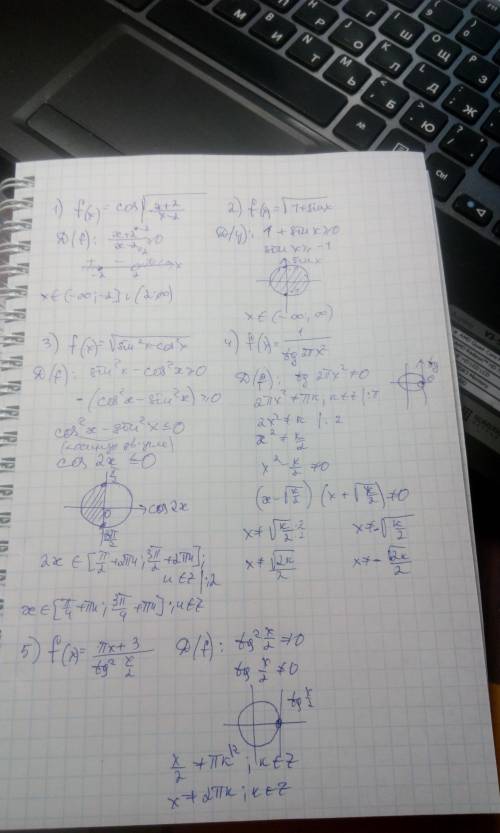 1) f(x) = cos√(x+2 / x-2)
D(f): x+2 / x-2 ≥ 0
x ∈ (-∞; -2] ∪ (2; ∞)
2) f(x) = √(1+sinx)
D(y): 1 + sinx ≥ 0
sinx ≥ -1
sinx
x ∈ (-∞; ∞)
3) f(x) = √(sin²x - cos²x)
D(f): sin²x - cos²x ≥ 0
-(cos²x - sin²x) ≥ 0
cos²x - sin²x ≤ 0
cos 2x ≤ 0
π/2
cos2x
3π/2
2x ∈ [π/2 + 2πn; 3π/2 + 2πn];
n ∈ Z |:2
x ∈ [π/4 + πn; 3π/4 + πn]; n ∈ Z
4) f(x) = 1 / tg 2πx²
D(f): tg 2πx² ≠ 0
tg
2πx² ≠ πk, k ∈ Z |:π
2x² ≠ k |:2
x² ≠ k/2
x² - k/2 ≠ 0
(x - √(k/2)) (x + √(k/2)) ≠ 0
x ≠ √(k/2 ·2/2) x ≠ -√(k/2)
x ≠ √(2k)/2 x ≠ -√(2k)/2
5) f(x) = πx + 3 / tg² x/2
D(f): tg² x/2 ≠ 0
tg x/2 ≠ 0
tg x/2
x/2 ≠ πk |·2; k ∈ Z
x ≠ 2πk; k ∈ Z